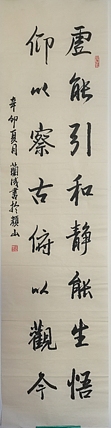 虚能引和静能生悟
仰以察古俯以觀今
辛卯夏月蘭成書於龍山